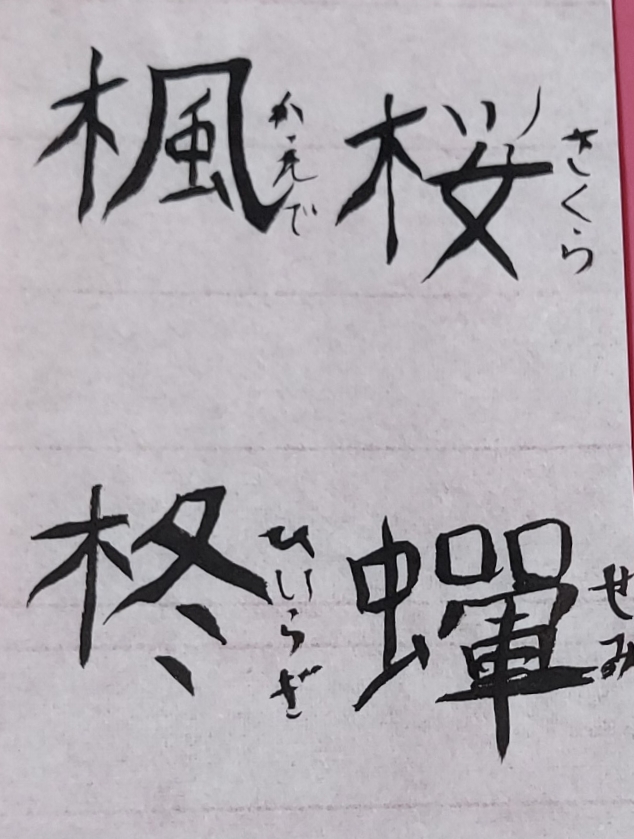 桜 さくら
楓 かえで
蟬 せみ
柊 ひいらぎ